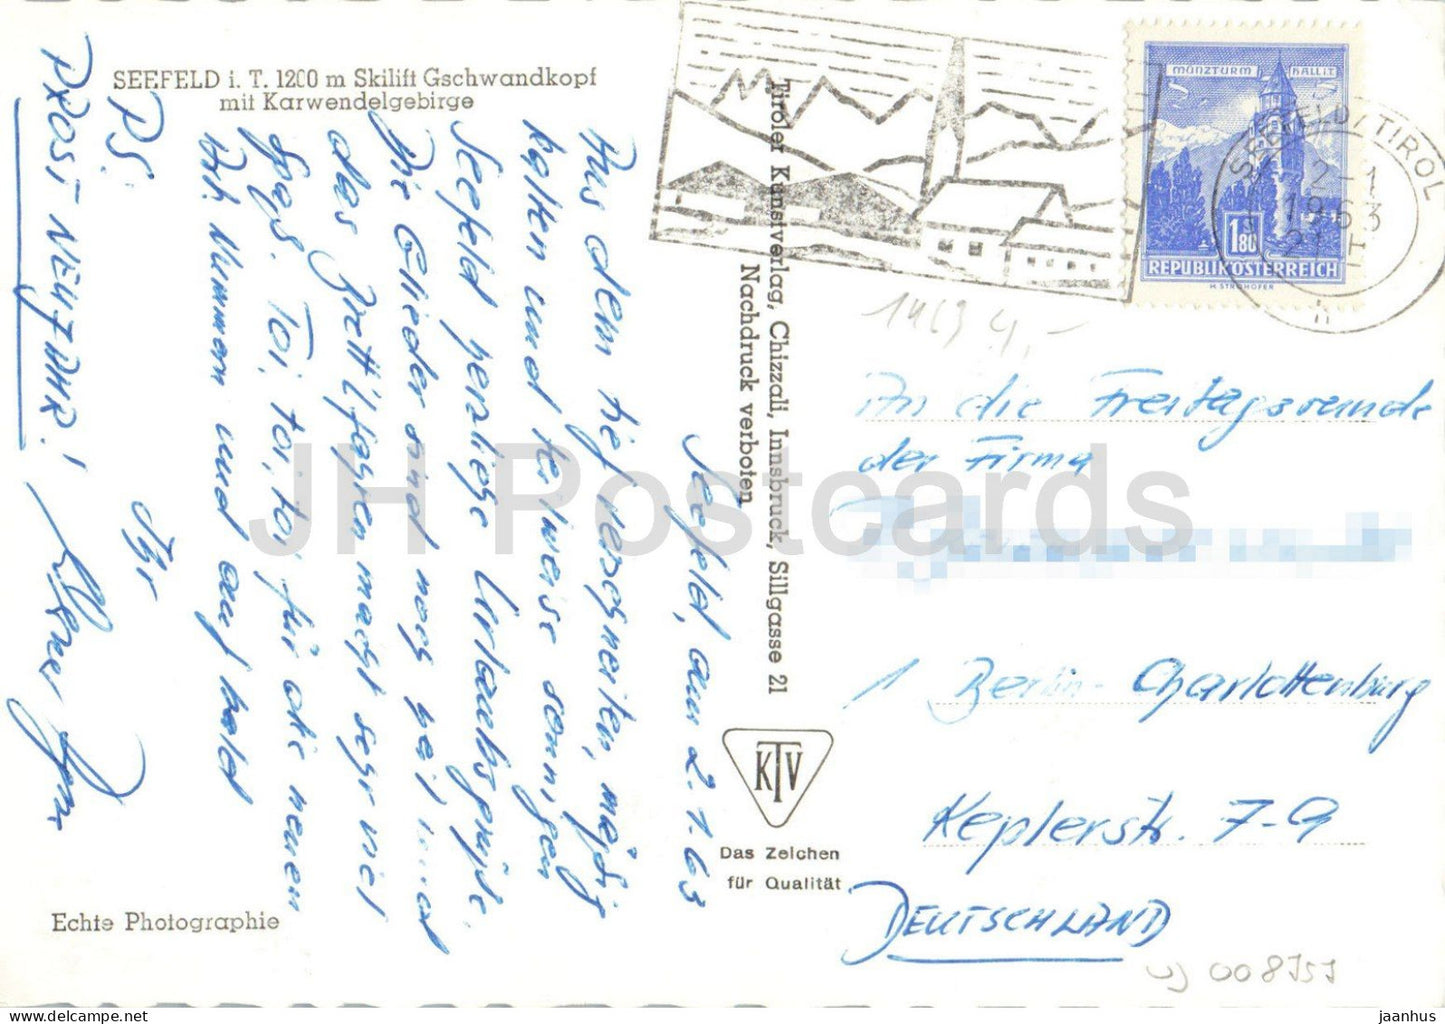 SEEFELD i. T. 1200 m Skilift Gschwandkopf
mit Karwendelgebirge
Seefeld, am 2.1.63
Aus dem tief verschneiten, mäßig
kalten und teilweise sonnigen
Seefeld herzliche Urlaubsgrüße.
Die Glieder sind noch heil und
das Brettlfahren macht sehr viel
Spaß. Toi, toi, toi für die neuen
und auf bald
Ihr
PS:
PROST NEUJAHR!
Echte Photographie
Tiroler Kunstverlag, Chizzali, Innsbruck, Sillgasse 21
Nachdruck verboten
KTV
Das Zeichen
für Qualität
MÜNZTURM HALL I.T.
1.80
REPUBLIK ÖSTERREICH
H. STROHOFER
SEEFELD/TIROL
2-1
1963
21 H
1463 4,-
An die Freitagsrunde
der Firma
1 Berlin-Charlottenburg
Keplerstr. 7-9
DEUTSCHLAND
008757
JH Postcards
jaanhus © delcampe.net